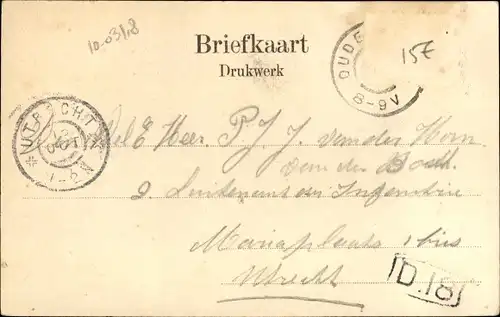 10-03/18
Briefkaart
Drukwerk
15E
OUDE
8-9V
UTRECHT
OCT
1-2
WelE Heer P. J. J. van der Horn
van den
2. Luitenant der Infanterie
Mariaplaats 1 bis
Utrecht
D.18